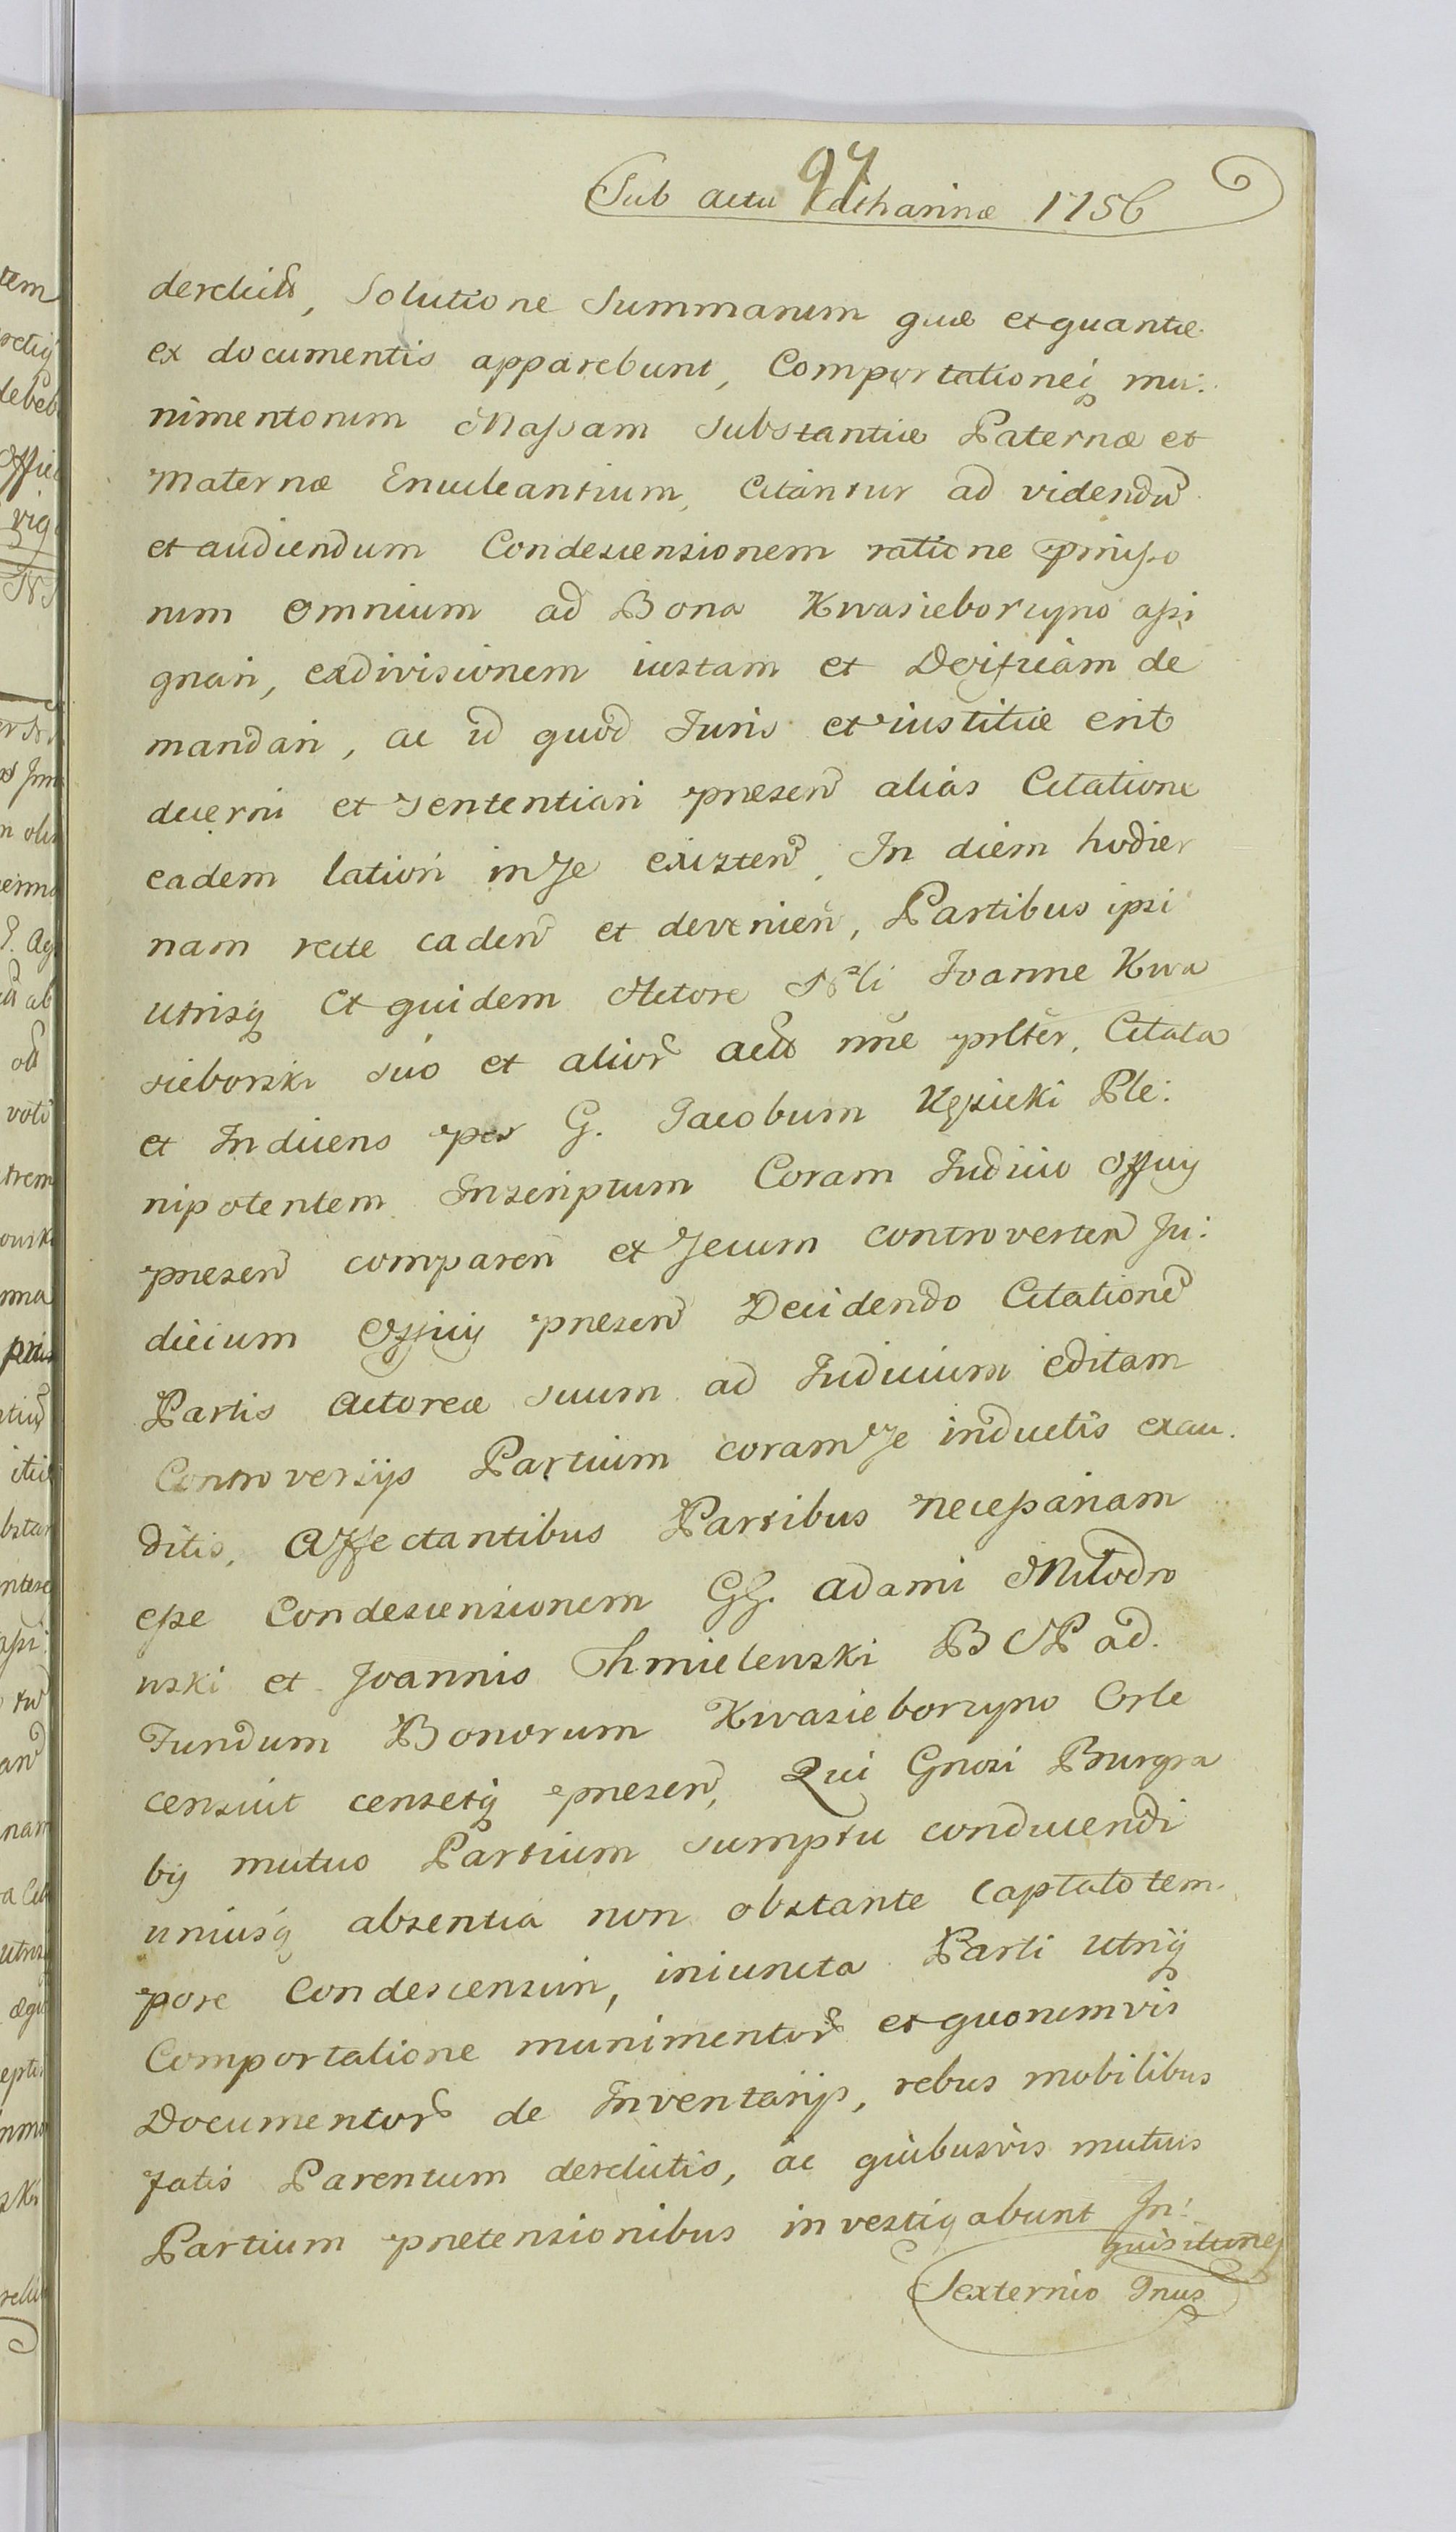 97
Sub actu Catharinæ 1756
derelict, Solutione Summarum quæ et quantæ
ex documentis apparebunt, Comportationeq mu:
nimentorum Massam substantiæ Paternæ et
Maternæ Enucleantium, Citantur ad videndu
et audiendum Condescensionem ratione præmisso
rum omnium ad Bona Kwasieborzyno assi
gnari, exdivisionem iustam et Decisivam de
mandari, ac id quod Juris et iustitiæ erit
decerni et sententiari præsen alias Citatione
eadem latiori in se existen, In diem hodier
nam recte caden et devenien, Partibus ipsi
utrisq Et quidem Actore Nli Joanne Kwa
sieborski suo et alior act nne prlter, Citata
et Induens per G. Jacobum Kęsicki Ple:
nipotentem Inscriptum Coram Judicio Officij
præsen comparen et secum controverten Ju:
dicium Officij præsen Decidendo Citatione
Partis Actoreæ suum ad Judicium editam
Controversijs Partium coram se inductis exau.
ditis, Affectantibus Partibus necessariam
esse Condescensionem GG. Adami Młodro
wski et Joannis Chmielenski B N P ad
Fundum Bonorum Kwasieborzyno Orle
censuit censetq præsen, Qui Gnosi Burgra
bij mutuo Partium sumptu conducendi
uniusq absentia non obstante captato tem.
pore Condescensuri, iniuncta Parti utriq
Comportatione munimentor et quorumvis
Documentor de Inventarijs, rebus mobilibus
fatis Parentum derelictis, ac quibusvis mutuis
Partium prætensionibus investigabunt In:
quisitioneq
Sexternio Gnus